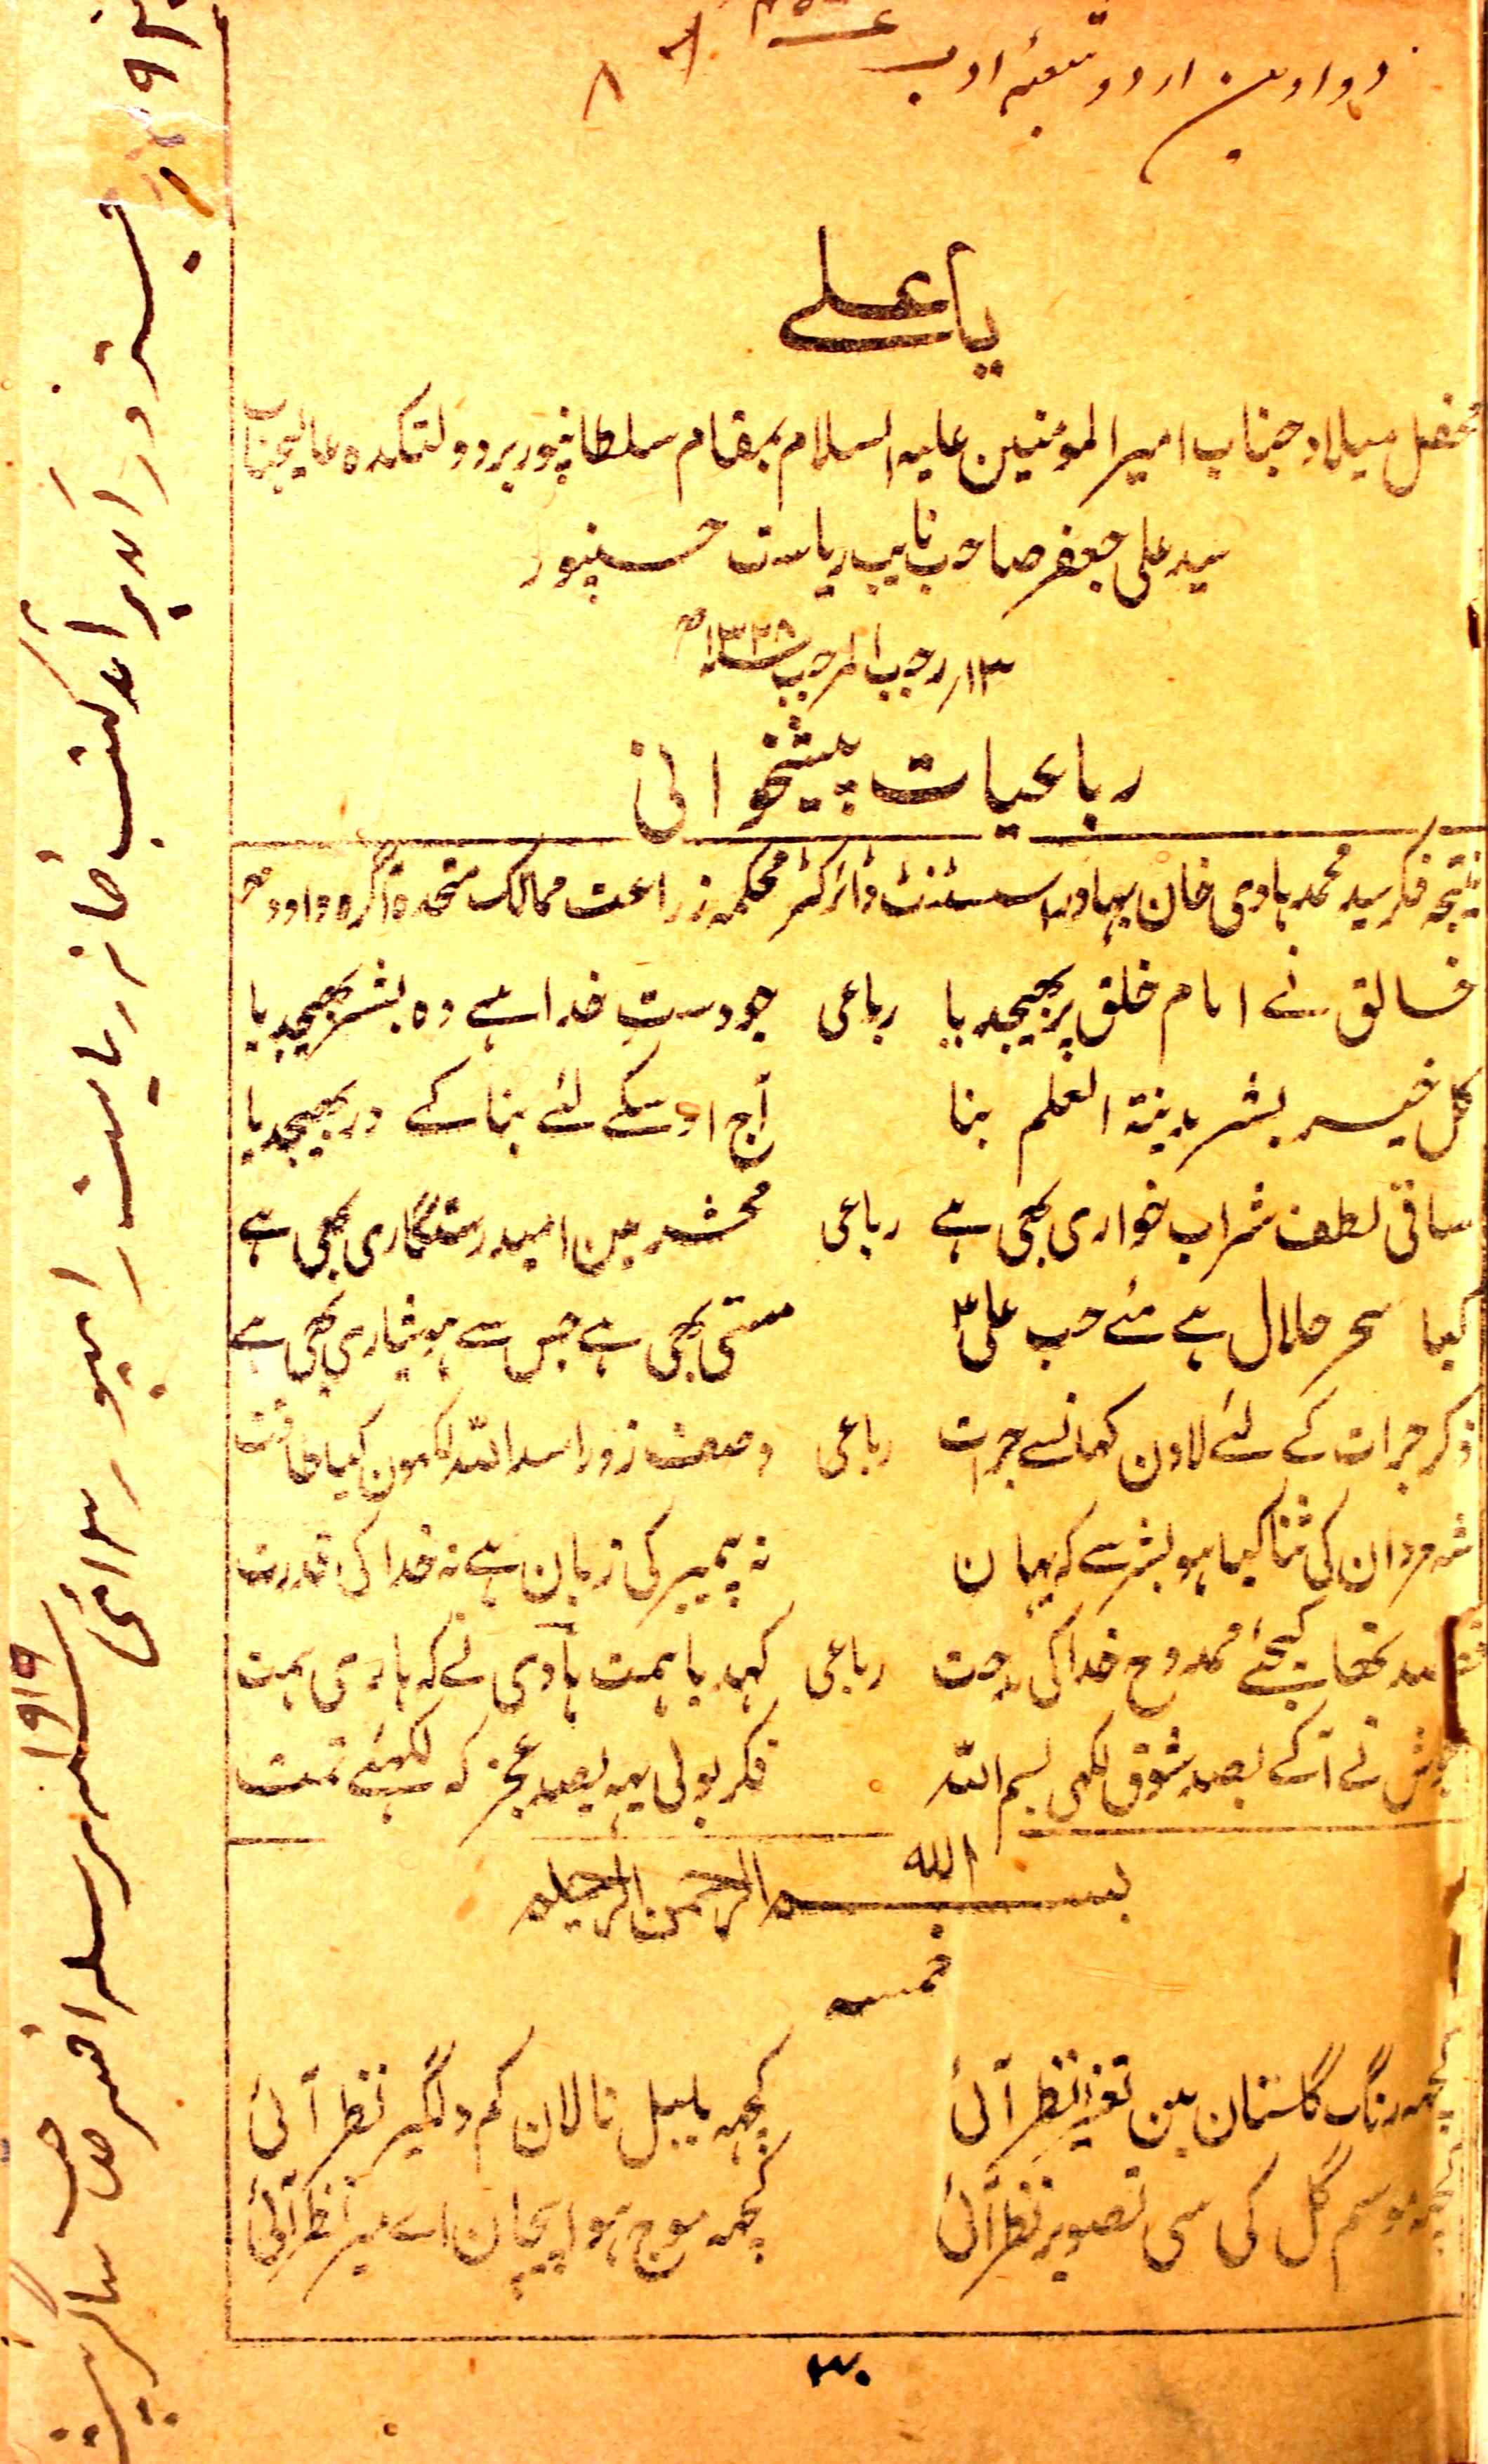 دواوین اردو شعبۂ ادب
۸
یا علی
محفل میلاد جناب امیر المومنین علیہ السلام بمقام سلطانپور بر دولتکدہ عالیجناب
سید علی جعفر صاحب نایب ریاست حسنپور
۱۳؍ رجب المرجب ۱۳۲۸ھ
رباعیات پیشخوانی
نتیجہ فکر سید محمد ہادی خان بہادر اسسٹنٹ ڈائرکٹر محکمہ زراعت ممالک متحدہ آگرہ و اودھ
خالق نے امام خلق پر بھیجدیا رباعی جو دست خدا ہے وہ بشر بھیجدیا
کل خیر بشر مدینۃ العلم بنا آج اوسکے لئے بنا کے در بھیجدیا
ساقی لطف شراب خواری بھی ہے رباعی محشر مین امید رستگاری بھی ہے
کیا سحر حلال ہے مئے حب علیؑ مستی بھی ہے جس سے ہوشیاری بھی ہے
ذکر جرات کے لئے لاون کہانسے جرات رباعی وصف زور اسد اللہ لکھون کیا طاقت
شہ مردان کی ثنا کیا ہو بشر سے کہ یہان نہ پیمبر کی زبان ہے نہ خدا کی قدرت
قصد تھا کیجئے ممدوح خدا کی مدحت رباعی کہدیا ہمت ہادی نے کہ ہاری ہمت
نے آکے بصد شوق لکھی بسم اللہ فکر بولی یہہ بصد عجز کہ لکھئے تمت
بسم اللہ الرحمن الرحیم
خمسہ
کچھہ رنگ گلستان مین تغیر نظر آئی کچھہ بلبل نالان کم دلگیر نظر آئی
کچھہ موسم گل کی سی تصویر نظر آئی کچھہ موج ہوا پیچان اے میر نظر آئی
۳۰
نمبر در آمد برآمد کتب خانہ ریاست رامپور
۱۹۱۶